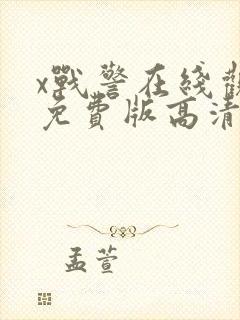 x戰警在綫觀
免費版高清
孟萱